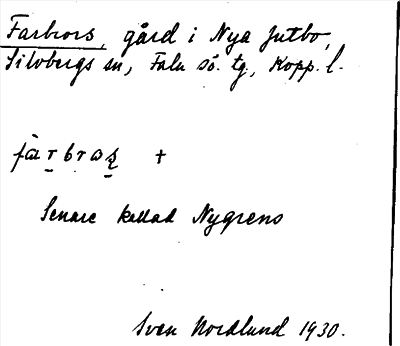 Farbrors, gård i Nya Jutbo,
Silvbergs sn, Falu sö. tg, Kopp. l.
fàrbros +
Senare kallad Nygrens
Sven Nordlund 1930.